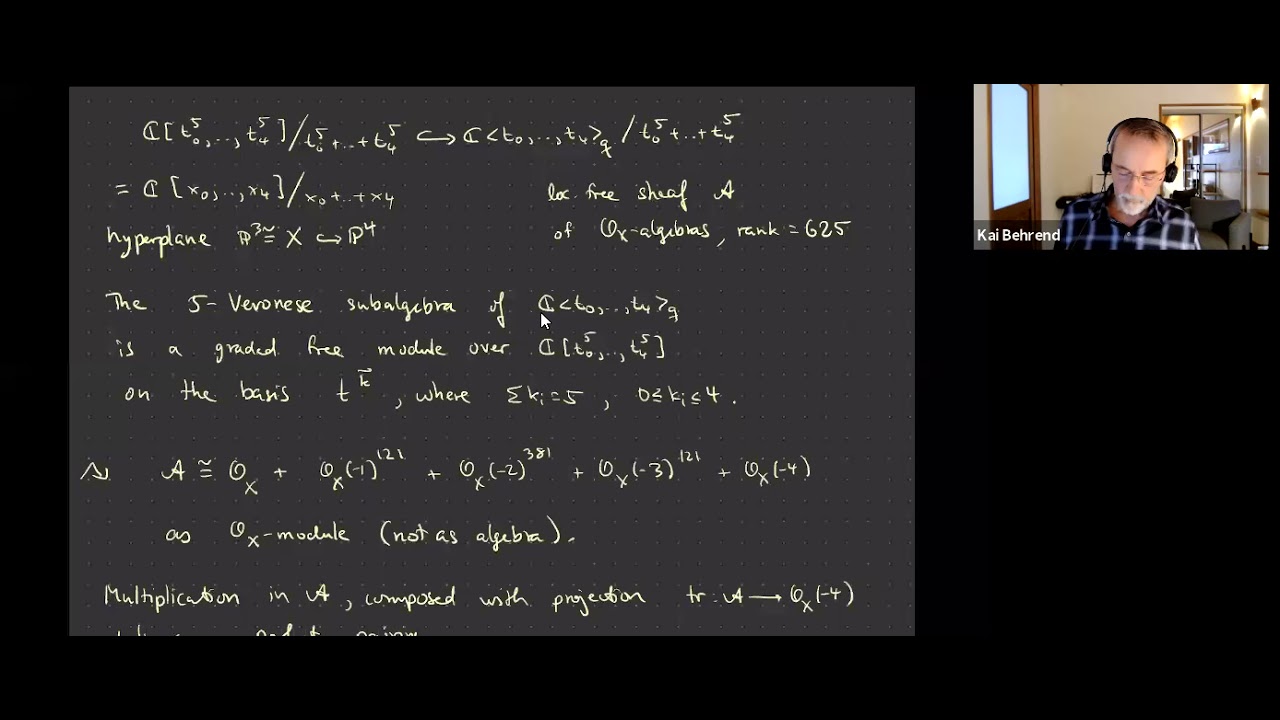 ℂ[t₀⁵,..,t₄⁵]/t₀⁵+..+t₄⁵ ↪ ℂ<t₀,..,t₄>_q /t₀⁵+..+t₄⁵
= ℂ[x₀,..,x₄]/x₀+..+x₄ loc. free sheaf A
hyperplane ℙ³ ≅ X ↪ ℙ⁴ of O_X-algebras, rank = 625
The 5-Veronese subalgebra of ℂ<t₀,..,t₄>_q
is a graded free module over ℂ[t₀⁵,..,t₄⁵]
on the basis t^k⃗, where Σkᵢ=5, 0≤kᵢ≤4.
A ≅ O_X + O_X(-1)^121 + O_X(-2)^381 + O_X(-3)^121 + O_X(-4)
as O_X-module (not as algebra).
Multiplication in A, composed with projection tr: A → O_X(-4)
Kai Behrend